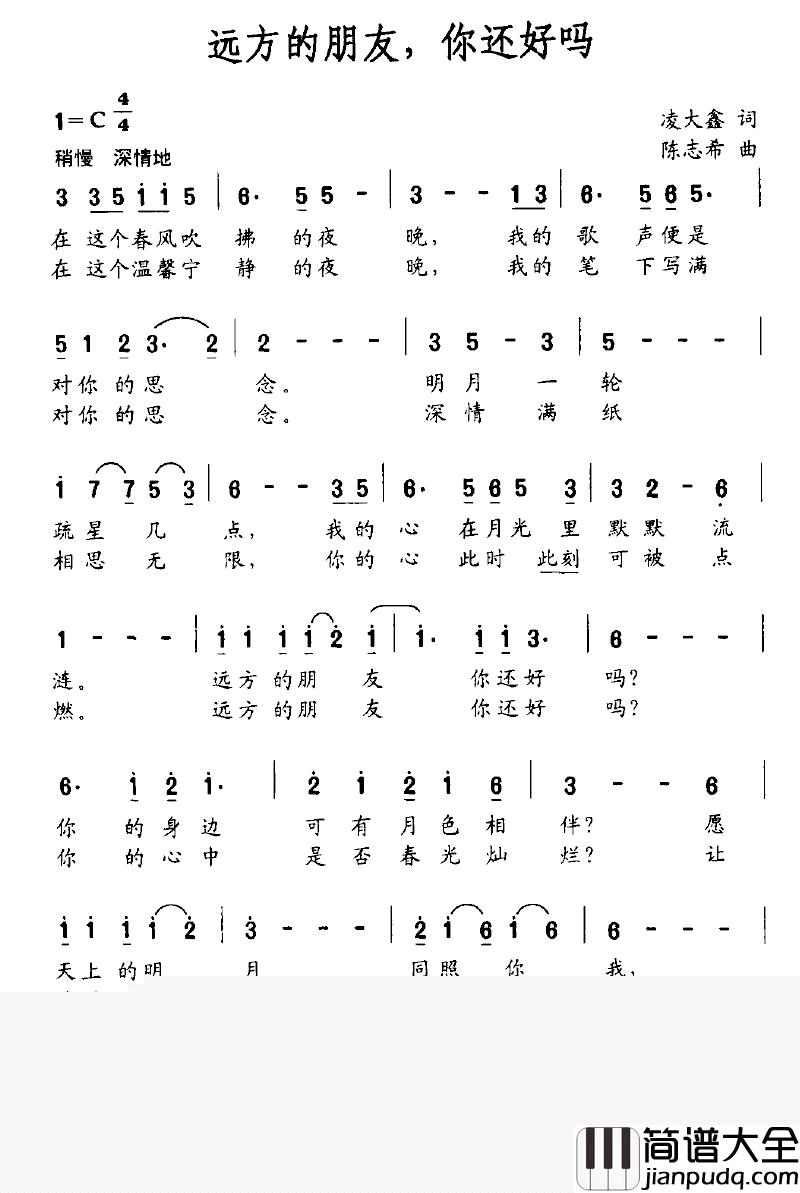 远方的朋友，你还好吗
1=C 4/4
凌大鑫 词
稍慢 深情地
陈志希 曲
3 3 5 i i 5 | 6· 5 5 | 3 - - 1 3 | 6· 5 6 5· |
在 这个春风吹 拂 的夜 晚， 我的 歌 声便是
在 这个温馨宁 静 的夜 晚， 我的 笔 下写满
5 1 2 3· 2 | 2 - - - | 3 5 - 3 | 5 - - - |
对你 的思 念。 明月 一 轮
对你 的思 念。 深情 满 纸
i 7 7 5 3 | 6 - - 3 5 | 6· 5 6 5 3 | 3 2 - 6
疏星 几 点， 我的 心 在月光 里 默默 流
相思 无 限， 你的 心 此时 此刻 可被 点
1 - - - | i i i i 2 i | i· i i 3· | 6 - - - |
涟。 远方 的朋 友 你还好 吗？
燃。 远方 的朋 友 你还好 吗？
6· i 2 i· | 2 i 2 i 6 | 3 - - 6 |
你 的身边 可有月色相 伴？ 愿
你 的心中 是否春光灿 烂？ 让
i i i i 2 | 3 - - - | 2 i 6 i 6 | 6 - - - |
天上 的明 月 同照 你 我，
简谱大全
jianpudq.com